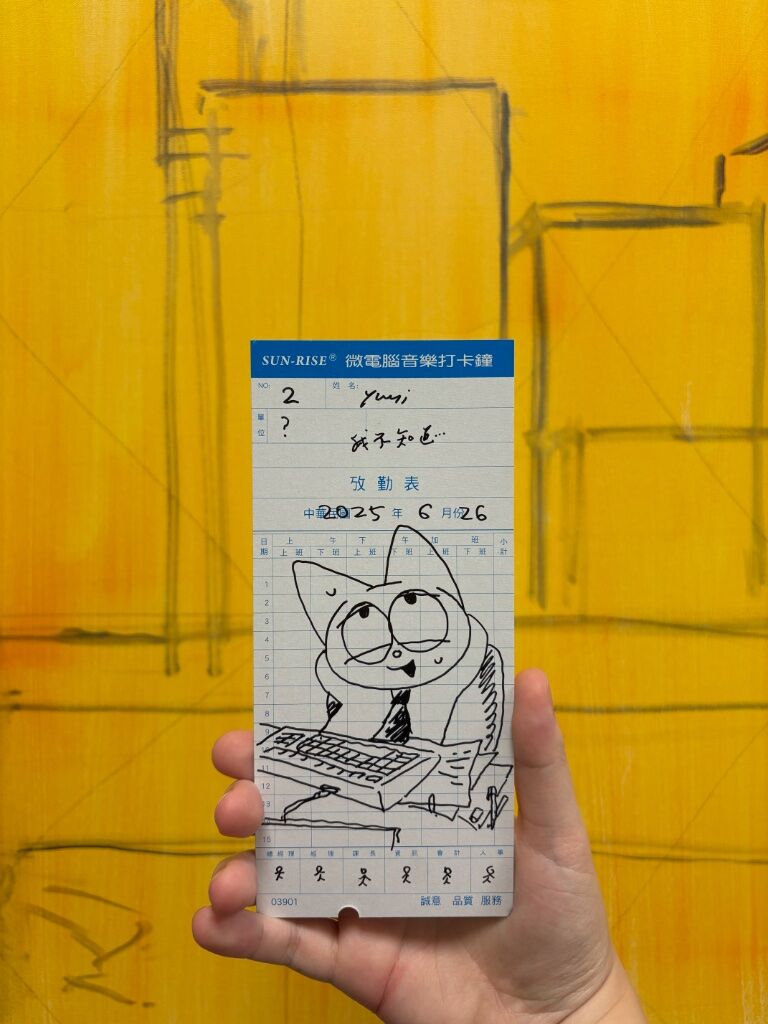 SUN-RISE® 微電腦音樂打卡鐘
NO: 2 姓名: yumi
單位 ?
我不知道...
攷勤表
中華民國 2025 年 6 月份 26
日期 上午 下午 加班 小計
上班 下班 上班 下班 上班 下班
1
2
3
4
5
6
7
8
9
11
12
13
15
總經理 經理 課長 資訊 會計 人事
03901 誠意 品質 服務